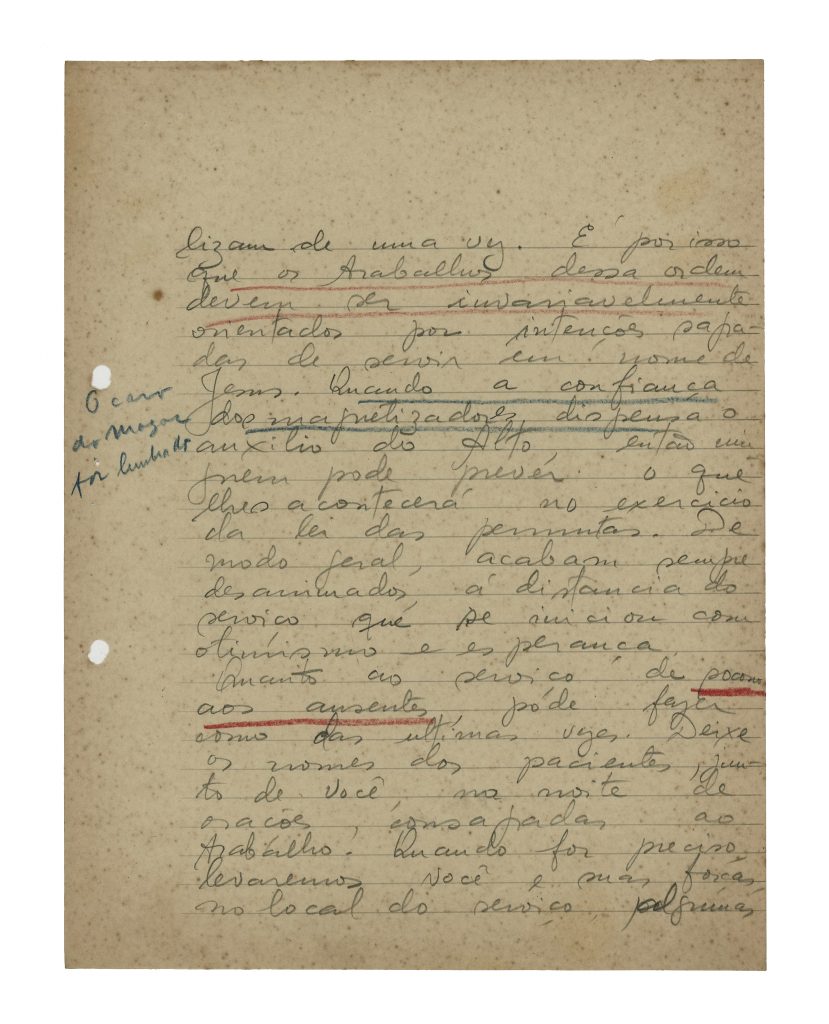 lizam de uma vez. É por isso
que os trabalhos dessa ordem
devem ser invariavelmente
orientados por intenções sagra-
das de servir em nome de
Jesus. Quando a confiança
dos magnetizadores dispensa o
auxílio do Alto, então nin-
guem pode prever o que
lhes acontecerá no exercicio
da lei das permutas. De
modo geral, acabam sempre
desanimados, á distancia do
serviço que se iniciou com
otimismo e esperança.
Quanto ao serviço de socorro
aos ausentes, póde fazer
como das ultimas vezes. Deixe
os nomes dos pacientes, jun-
to de você, na noite de
orações, consagradas ao
trabalho. Quando for preciso,
levaremos você e suas forças
no local do serviço,
O caso
do
foi lembrado